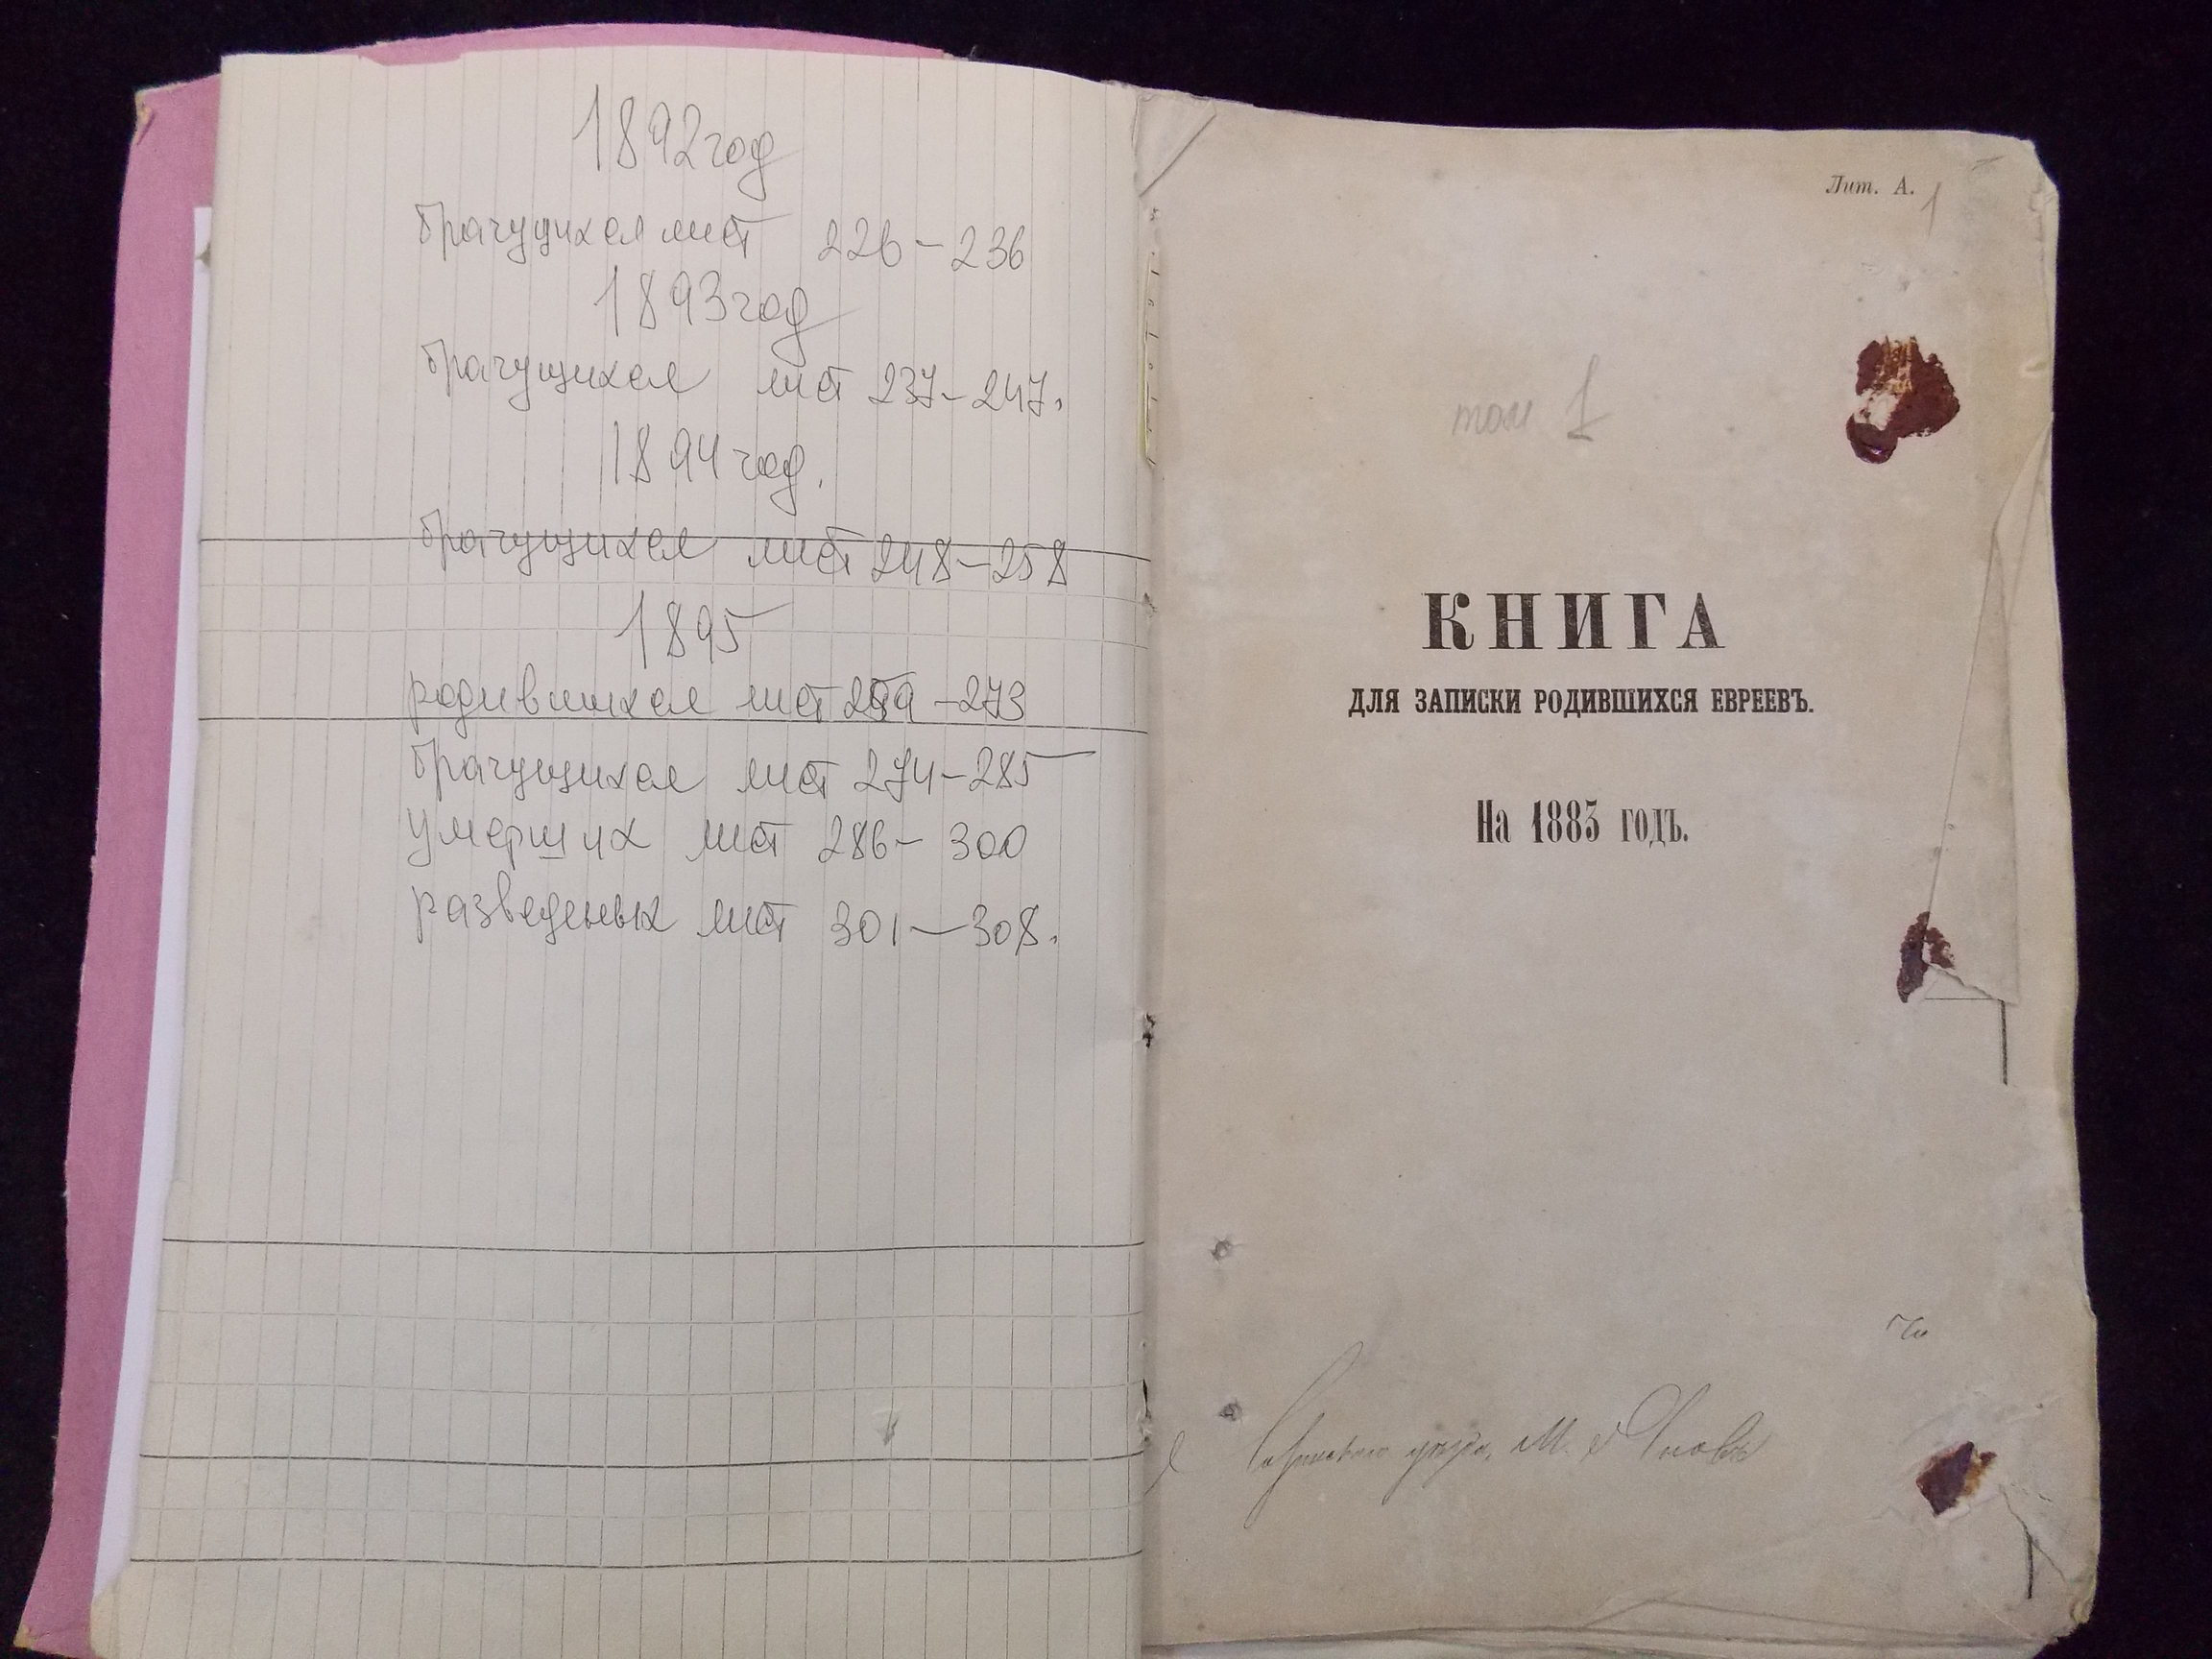 1892 год
брачущихся лист 226-236
1893 год
брачущихся лист 237-247.
1894 год.
брачущихся лист 248-258
1895
родившихся лист 259-273
брачущихся лист 274-285
умерших лист 286-300
разведеных лист 301-308.
Лит. А.
1
том 1
КНИГА
ДЛЯ ЗАПИСКИ РОДИВШИХСЯ ЕВРЕЕВЪ.
На 1883 годъ.
уезда, М. Яновъ